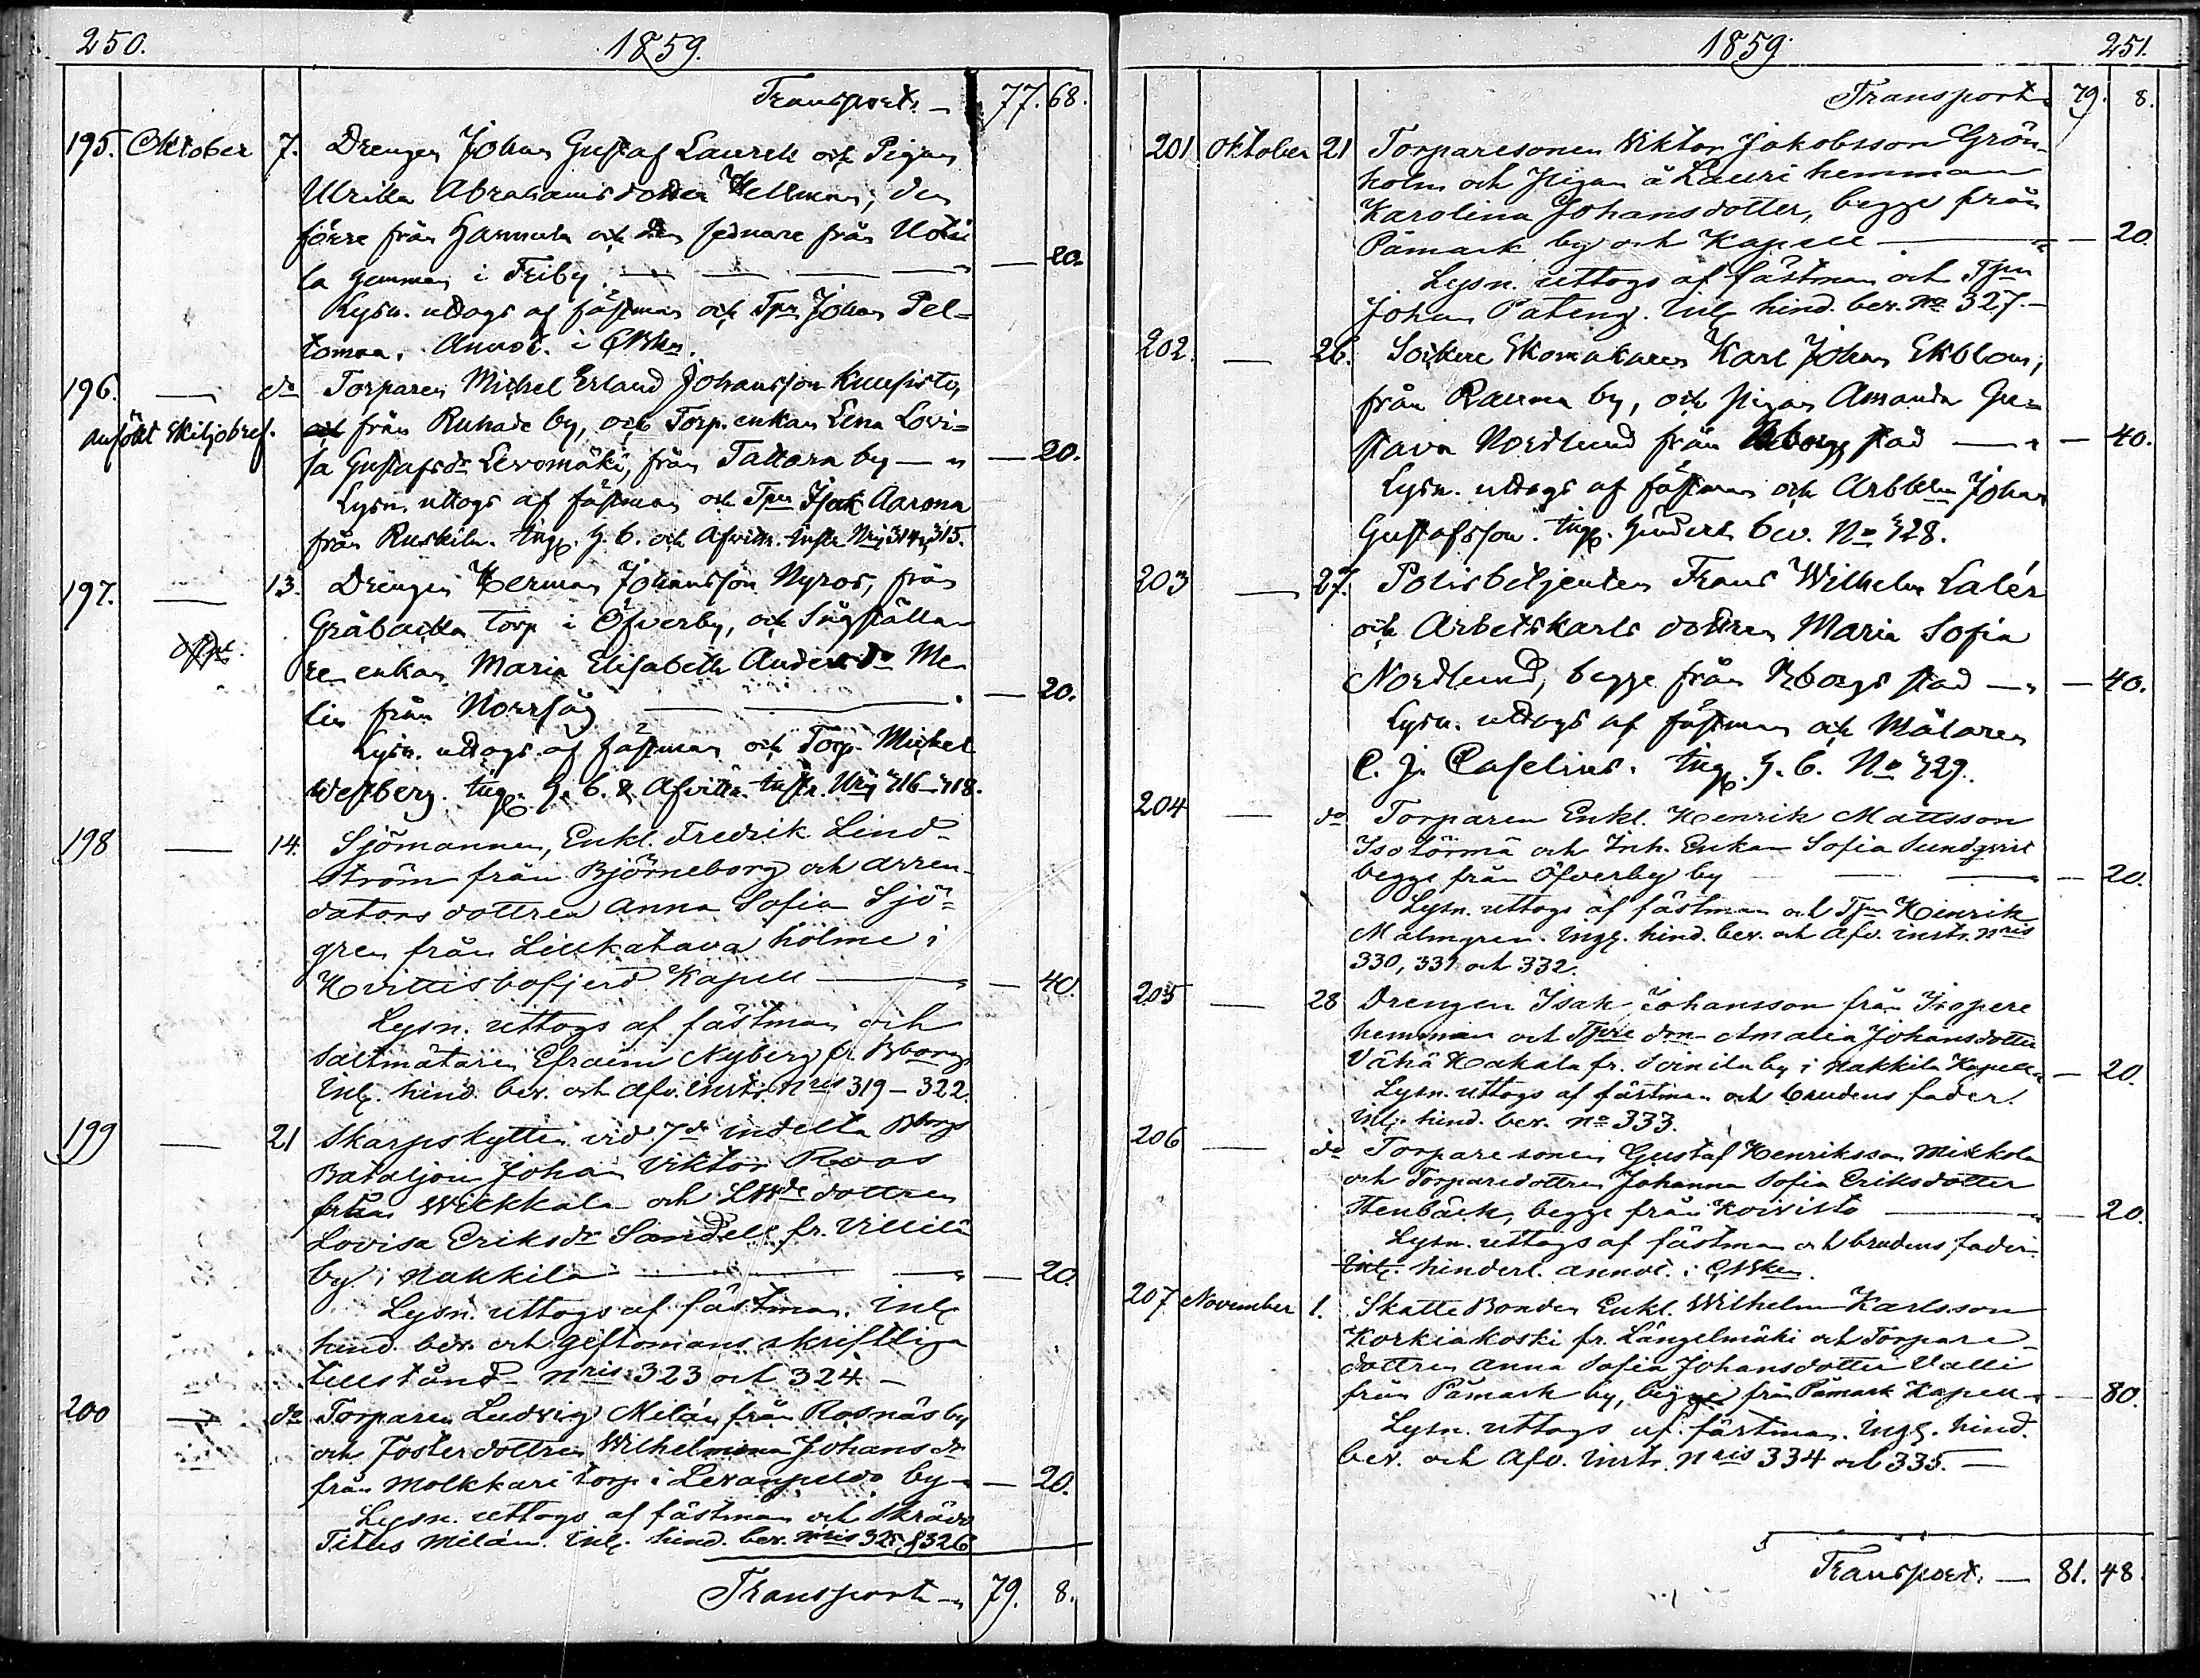 250. 1859.
Transport. — 77. 68.
195. Oktober 7. Drengen Johan Gustaf Laurell och Pigan
Ulrika Abrahamsdotter Hellman; den
förre från Harmula och den sednare från
la hemman i Friby — — — " — 20.
Lysn. uttogs af fästman och Tpn Johan Pel-
tomaa. Annot. i
196. — do Torparen Michel Erland Johansson Kuusisto,
anfökt Skiljobref. från Ruhade by, och Torp.enkan Lena Lovi-
sa Gustafsdr Levomäki, från Tattara by — " — 20.
Lysn. uttogs af fästman och Tpn Isak Aarona
från Ruskila. Ingg. h. b. och Afvittr. Instr. Nris 314, 315.
197. — 13. Drengen Herman Johansson Nyroos, från
Gråbacka torp i Öfverby, och Sågställa-
re enkan Maria Elisabeth Andersdr Me-
lin från Norrsåg — — " — 20.
Lysn. uttogs af fästman och Torp. Michel
Westberg. Ingg. h. b. & Afvittr. Instr. Nris 316–318.
198 — 14. Sjömannen, Enkl. Fredrik Lind-
ström från Björneborg och arren-
dators dottren Anna Sofia Sjö-
gren från Liukatava holme i
Hvittisbofjerd Kapell — " — 40.
Lysn. uttogs af fästman och
Saltmätaren Efraim Nyberg fr. Bborg
Inlg. hind. bev. och Afv. instr. Nris 319 – 322.
199 — 21 Skarpskytten vid 7de indelta Bborgs
Bataljon Johan Viktor Roos
från Wiikkala och dottren
Lovisa Eriksdr Sandell fr. Villilä
by i Nakkila — — " — 20.
Lysn. uttogs af fästman. Inlg
hind. bev. och giftomans skriftliga
tillstånd Nris 323 och 324 —
200 — do Torparen Ludvig Milán från Rosnäs by
och Fosterdottren Wilhelmina Johansdr
från Molkkari torp i Levanpelto by — " — 20.
Lysn. uttogs af fästman och Skräddn
Titus Milán. Inlg. hind. bev. Nris 325 & 326
Transport — " 79. 8.
1859. 251.
Transport 79. 8.
201 Oktober 21 Torparesonen Viktor Jakobsson Grön-
holm och Pigan å Lauri hemman
Karolina Johansdotter, begge från
Påmark by och Kapell — " — 20.
Lysn. uttogs af fästman och Tpn
Johan Pateng. Inlg hind. bev. No 327. —
202. — 26. Sockne Skomakaren Karl Johan Ekblom,
från Rauma by, och Pigan Amanda Gu-
stava Nordlund från Bborgs stad — " — 40.
Lysn. uttogs af fästman och Arbkln Johan
Gustafsson. Ingg. hinders bev. No 328.
203 — 27. Polisbetjenten Frans Wilhelm Lalér
och Arbetskarls dottren Maria Sofia
Nordlund, begge från Bborgs stad — " — 40.
Lysn. uttogs af fästman och Målaren
C. J. Caselius. Ingg. h. b. No 329.
204 — do Torparen Enkl. Henrik Mattsson
Isotörmä och Inh. Enkan Sofia Sundqvist
begge från Öfverby by — — " — 20.
Lysn. uttogs af fästman och Tpn Henrik
Malmgren. Ingg. hind. bev. och Afv. instr. Nris
330, 331 och 332.
205 — 28 Drengen Isak Johansson från Isopere
hemman och Amalia Johansdotter
Vähä Hakala fr. Soinila by i Nakkila Kapell " — 20.
Lysn. uttogs af fästman och brudens fader.
Inlg. hind. bev. No 333.
206 — do Torparesonen Gustaf Henriksson Mikkola
och Torparedottren Johanna Sofia Eriksdotter
Stenbäck, begge från Koivisto — " — 20.
Lysn. uttogs af fästman och brudens fader.
Inlg. hinderl. annot. i
207 November 1. Skatte Bonden Enkl. Wilhelm Karlsson
Korkiakoski fr. Längelmäki och Torpare-
dottren Anna Sofia Johansdotter Valli
från Påmark by, begge från Påmark Kapell " — 80.
Lysn. uttogs af fästman. Ingg. hind.
bev. och Afv. instr. Nris 334 och 335. —
Transport. — 81. 48.